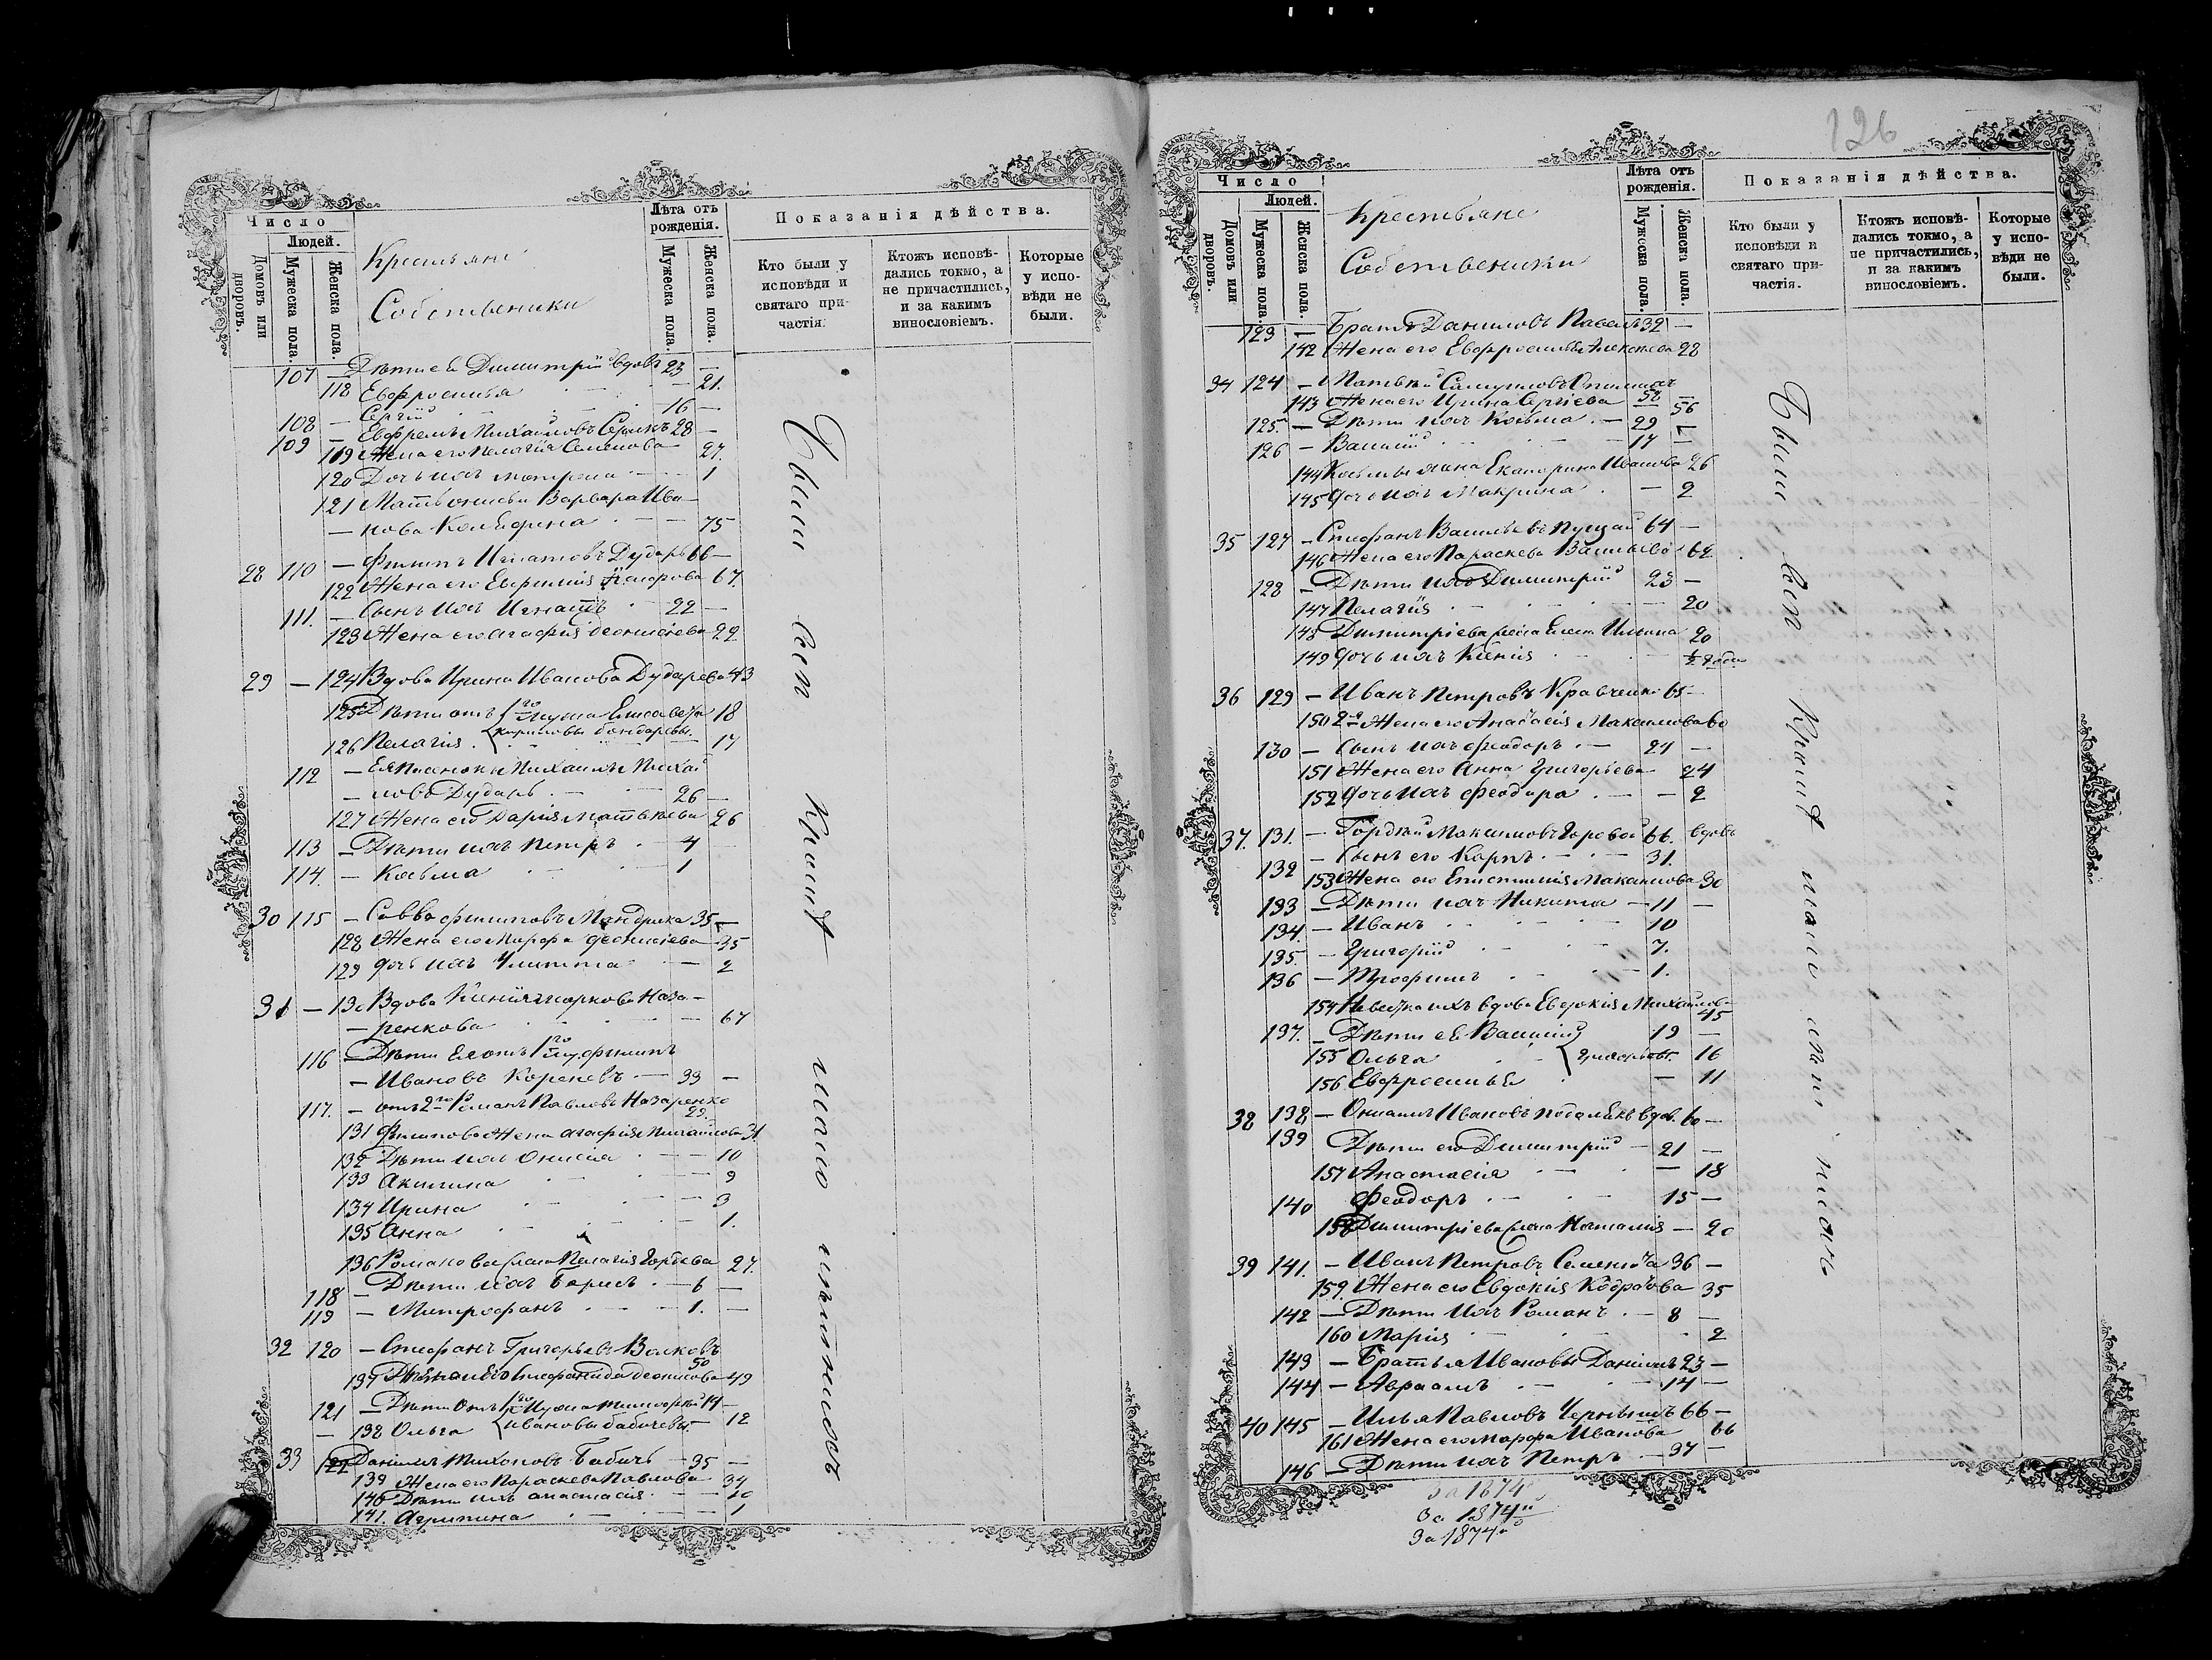 Число
Людей.
Домовъ или дворовъ.
Мужеска пола.
Женска пола.
Крестьяне
Собственики
Лѣта отъ рожденія.
Мужеска пола.
Женска пола.
Показанія дѣйства.
Кто были у исповѣди и святаго причастія.
Ктожъ исповѣдались токмо, а не причастились, и за какимъ винословіемъ.
Которые у исповѣди не были.
107 — Дѣти ея Димитрій вдовъ 23 —
118 Евфросинья — 21.
108 — Сергій — 16 —
109 — Ефремъ Михайловъ 28 —
119 Жена его Пелагія Семенова 27.
120 Дочь ихъ Матрона — 1
121 Мать Варвара Ива-
— нова — 75
28 110 — Филипъ Игнатовъ Дударь 66 —
122 Жена его Евфимія 67.
111. — Сынъ ихъ Игнатъ — 22 —
123 Жена его Агафія Деонисіева 22
29 — 124 Вдова Ирина Иванова Дударева 43
125 Дѣти отъ 1го мужа Елисавета 18
126 Пелагія. Бондаревы. — 17
112 — Михаилъ Михай
— ловъ Дударь — 26 —
127 Жена его Дарія Матвѣева 26
113 — Дѣти ихъ Петръ — 4
114. — Косьма — 1
30 115 — Савва Филиповъ Мандрика 35 —
128 Жена его Марфа Деонисіева 35
129 Дочь ихъ Улита — 2
31 — 130 Вдова Ксенія Маркова Наза-
— ренкова — 67
116 — Дѣти ея отъ 1го му. Филипъ
— Ивановъ Кореневъ — 33 —
117. — отъ 2го Романъ Павловъ Назаренко 29.
131 Филипова жена Агафія Михайлова 31
132 Дѣти ихъ Онисія — 10
133 Акилина — 9
134 Ирина — 3
135 Анна — 1.
136 Романова жена Пелагія 27.
118 — Дѣти ихъ Борисъ — 6 —
119 — Митрофанъ — 1. —
32 120 — Стефанъ Григорьевъ Волковъ 50
137 Жена его Деонисова 49
121 — Дѣти отъ 1го мужа 14 —
— 138 Ольга Ивановы Бабичевы — 12
33 122 Даніилъ Тихоновъ Бабичь — 35 —
139 Жена его Параскева Павлова 34
140 Дѣти ихъ Анастасія — 10
141. Агрипина — 1
Были вси кромѣ мало лѣтнихъ
126
Число
Людей.
Домовъ или дворовъ.
Мужеска пола.
Женска пола.
Крестьяне
Собственики
Лѣта отъ рожденія.
Мужеска пола.
Женска пола.
Показанія дѣйства.
Кто были у исповѣди и святаго причастія.
Ктожъ исповѣдались токмо, а не причастились, и за какимъ винословіемъ.
Которые у исповѣди не были.
123 — Братъ Даниловъ Павелъ 32 —
142 Жена его Евфросинья Алексѣева 28
34 124 — Матвѣй Самуиловъ 58 —
143 Жена его Ирина Сергіева 56
125. — Дѣти ихъ Косьма — 29 —
126 — Василій — 17 —
144 Косьмы жена Екатерина Иванова 26
145 Дочь ихъ Макрина — 2
35 127 — Стефанъ Васильевъ 64 —
146 Жена его Параскева Васильева 62
128 — Дѣти ихъ Димитрій 23 —
147 Пелагія — 20
148 Димитріева жена Елена Ильина 20
149 Дочь ихъ Ксенія — ½ года
36 129 — Иванъ Петровъ Кравченко 65 —
150 2я Жена его Анастасія Максимова 60
130 — Сынъ ихъ Феодоръ — 21 —
151 Жена его Анна Григорьева 24
152 Дочь ихъ Феодора — 2
37. 131. — Гордій Максимовъ Горовой 66. вдовъ
132 — Сынъ его Карпъ — 31.
153 Жена его Епистимія Максимова 30
133 — Дѣти ихъ Никита — 11 —
134. — Иванъ — 10
135 — Григорій — 7.
136 — Трофимъ — 1.
154 Невѣстка ихъ вдова Евдокія Михайлова 45
137. — Дѣти ея Василій 19 —
155 Ольга Григорьевы. 16
156 Евфросинья — 11
38 138 — Онисимъ Ивановъ вдов. 60 —
139 Дѣти его Димитрій — 21 —
157 Анастасія — 18
140 Феодоръ — 15 —
158 Димитріева жена Наталія — 20
39 141. — Иванъ Петровъ 36 —
159. Жена его Евдокія 35
142 — Дѣти ихъ Романъ — 8 —
160 Марія — 2
143 — Братья Ивановы Даніилъ 23 —
144 — Авраамъ — 14 —
40 145 — Илья Павловъ Чернышъ 66 —
161 Жена его Марфа Иванова 66
146 — Дѣти ихъ Петръ — 37 —
Были вси кромѣ мало лѣтнихъ
За 1874
За 1874
За 1874